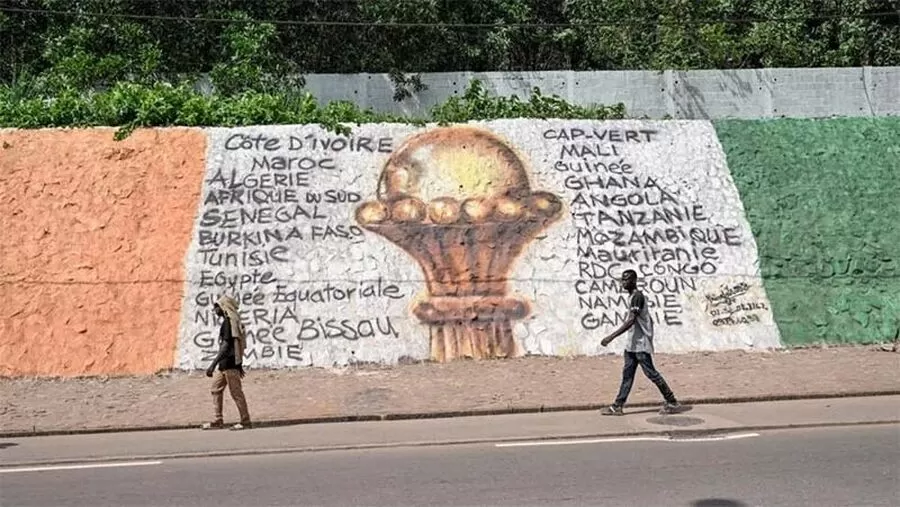 CÔTE D'IVOIRE
MAROC
ALGERIE
AFRIQUE DU SUD
SENEGAL
BURKINA FASO
Tunisie
Egypte
Guinée Équatoriale
NIGERIA
Guinée Bissau
ZAMBIE
CAP-VERT
MALI
Guinée
GHANA
ANGOLA
TANZANIE
Mozambique
Mauriranie
RDC-CONGO
CAMEROUN
NAMIBIE
GAMBIE